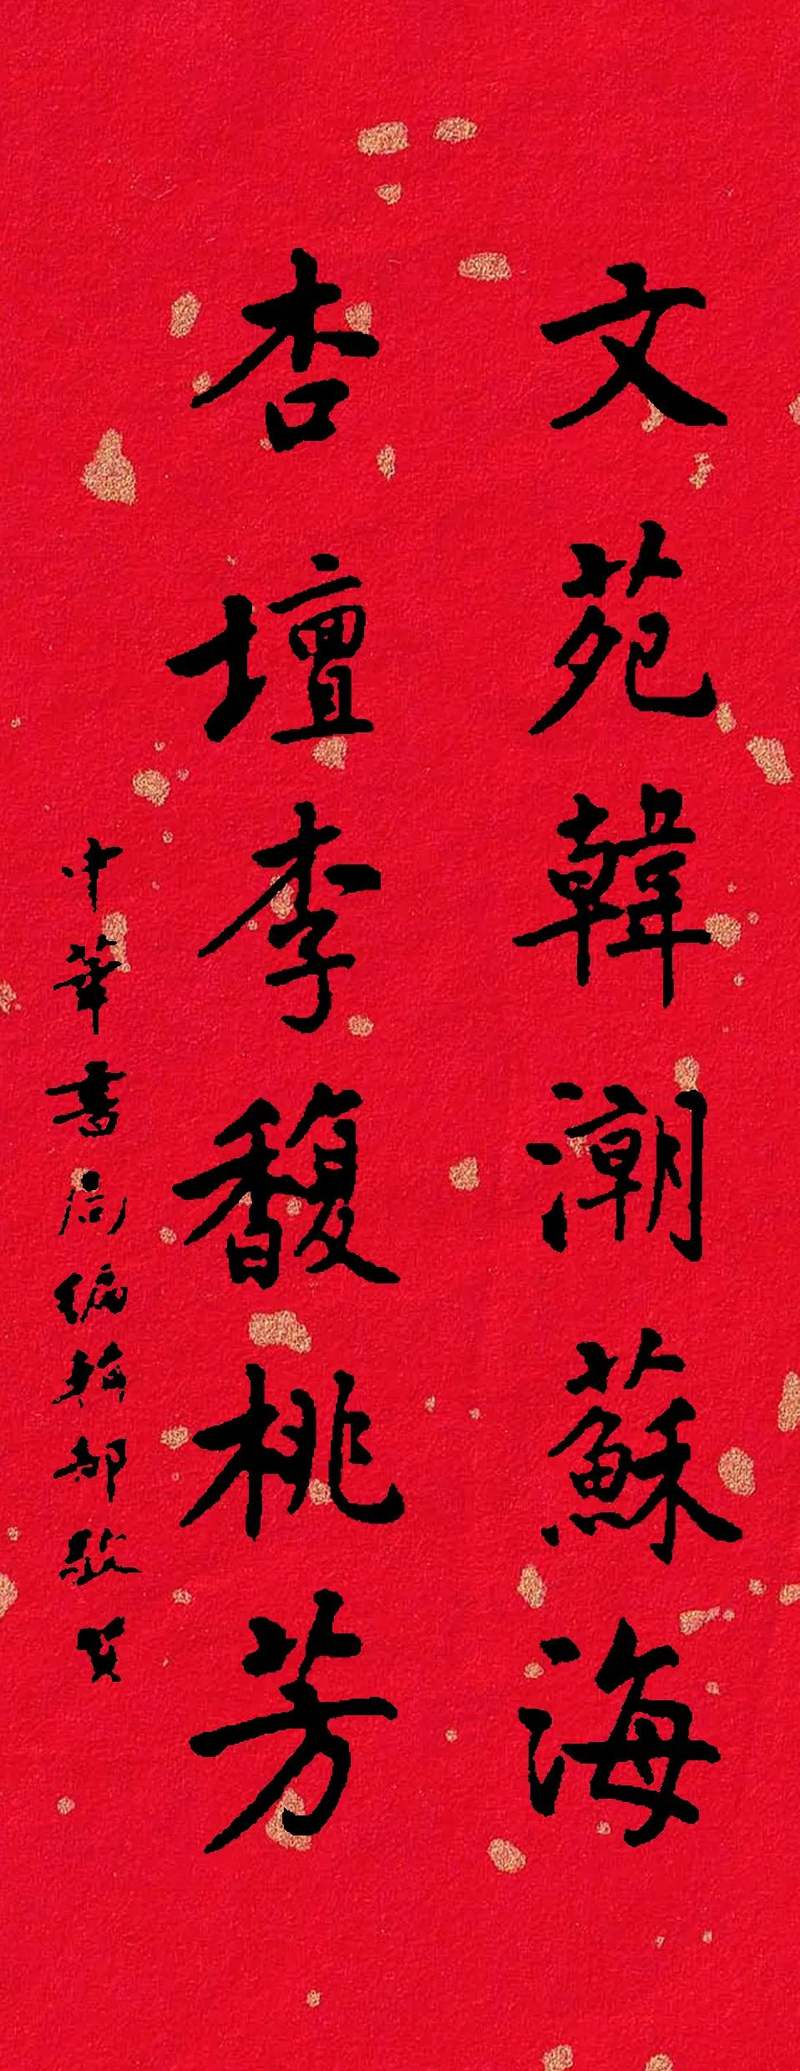 文苑韓潮蘇海
杏壇李馥桃芳
中華書局編輯部敬賀